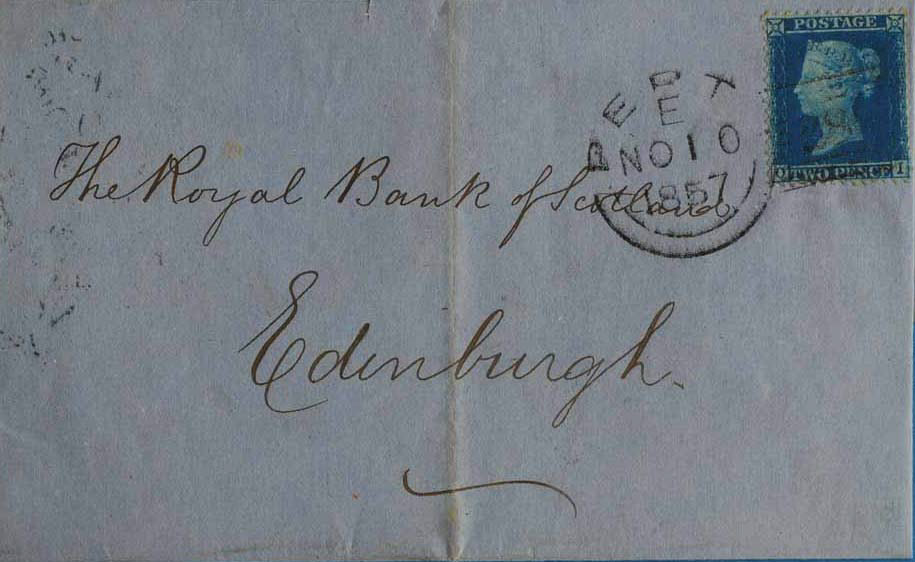 POSTAGE
TWO PENCE
E
NO 10
1857
The Royal Bank of Scotland
Edinburgh.